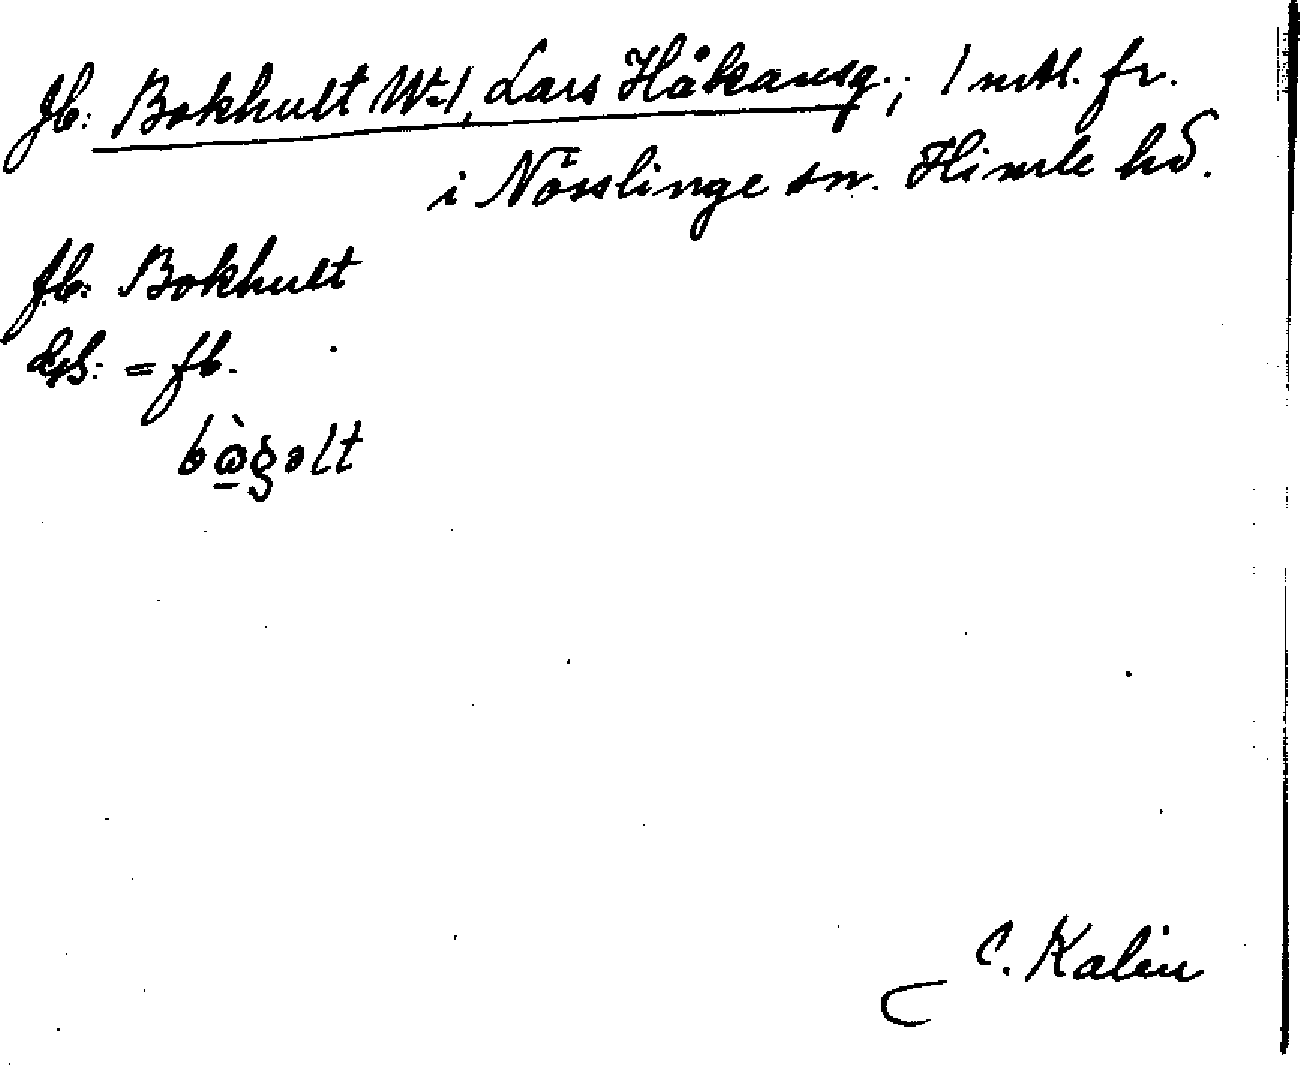 Jb: Bokhult No 1, Lars Håkansg.; 1 mtl. fr.
i Nösslinge sn. Himle hd.
fb: Bokhult
= fb.
C. Kalén